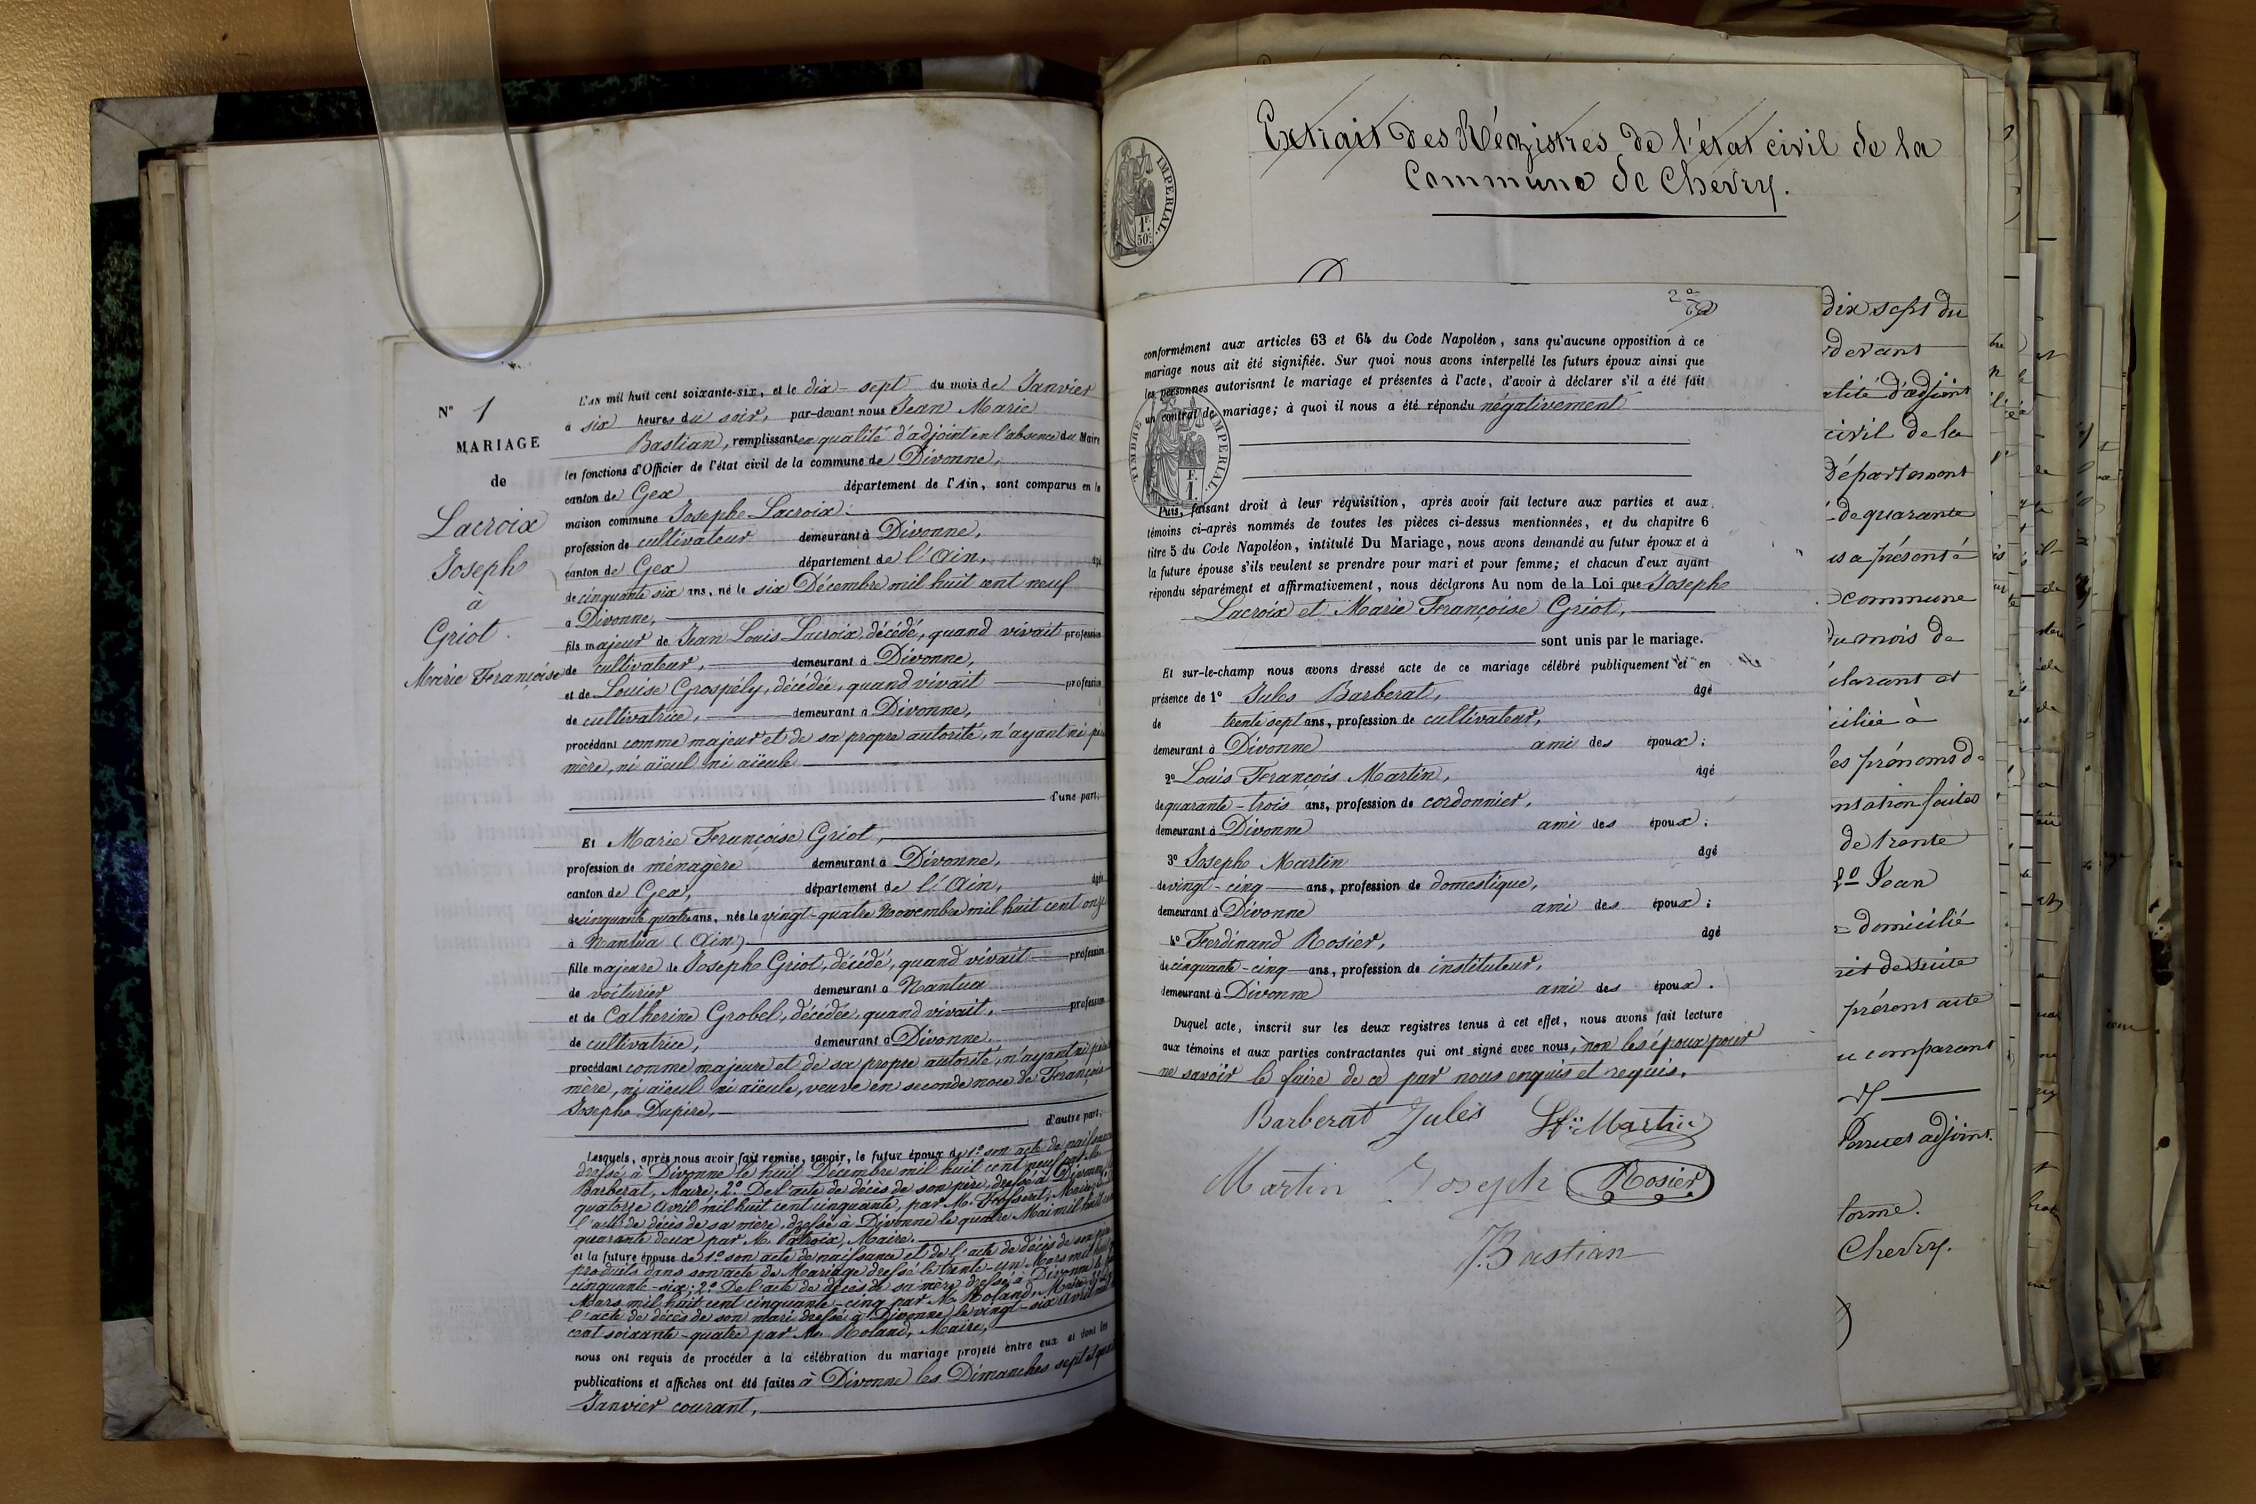 N° 1
MARIAGE
de
Lacroix
Joseph
à
Griot.
Marie Françoise
L'AN mil huit cent soixante-six, et le dix-sept du mois de Janvier
à six heures du soir, par-devant nous Jean Marie
Bastian, remplissant en qualité d'adjoint en l'absence du Maire
les fonctions d'Officier de l'état civil de la commune de Divonne,
canton de Gex département de l'Ain, sont comparus en la
maison commune Joseph Lacroix.
profession de cultivateur demeurant à Divonne,
canton de Gex département de l'Ain, âgé
de cinquante six ans, né le six Décembre mil huit cent neuf
à Divonne,
fils majeur de Jean Louis Lacroix, décédé, quand vivait profession
de cultivateur, demeurant à Divonne,
et de Louise Grospely, décédée, quand vivait profession
de cultivatrice, demeurant à Divonne,
procédant comme majeur et de sa propre autorité, n'ayant ni père
mère, ni aïeul ni aïeule
d'une part,
Et Marie Françoise Griot,
profession de ménagère demeurant à Divonne,
canton de Gex, département de l'Ain, âgée
de cinquante quatre ans, née le vingt-quatre Novembre mil huit cent onze
à Nantua (Ain)
fille majeure de Joseph Griot, décédé, quand vivait profession
de voiturier demeurant à Nantua
et de Catherine Grobel, décédée, quand vivait, profession
de cultivatrice, demeurant à Divonne,
procédant comme majeure et de sa propre autorité, n'ayant ni père
mère, ni aïeul ni aïeule, veuve en seconde noce de François
Joseph Dupire,
d'autre part;
Lesquels, après nous avoir fait remise, savoir, le futur époux de 1° son acte de naissance
dressé à Divonne le huit Décembre mil huit cent neuf par M.
Barberat, Maire; 2° De l'acte de décès de son père, dressé à Divonne
quatorze Avril mil huit cent cinquante, par M. Maire;
l'acte de décès de sa mère, dressé à Divonne le quatre Mai mil huit cent
quarante deux par M. Maire.
et la future épouse de 1° son acte de naissance et de l'acte de décès de son père
produits dans son acte de Mariage dressé le trente-un Mars mil huit
cinquante-six; 2° De l'acte de décès de sa mère dressé à Divonne le
Mars mil huit cent cinquante-cinq par M. Roland, Maire; 3°
l'acte de décès de son mari dressé à Divonne le vingt-six Avril mil
cent soixante-quatre par M. Roland, Maire,
nous ont requis de procéder à la célébration du mariage projeté entre eux et dont les
publications et affiches ont été faites à Divonne les Dimanches sept et
Janvier courant,
Extrait des Régistres de l'état civil de la
Commune de Chevry.
TIMBRE IMPERIAL.
1F.
50c
conformément aux articles 63 et 64 du Code Napoléon, sans qu'aucune opposition à ce
mariage nous ait été signifiée. Sur quoi nous avons interpellé les futurs époux ainsi que
les personnes autorisant le mariage et présentes à l'acte, d'avoir à déclarer s'il a été fait
un contrat de mariage; à quoi il nous a été répondu négativement
TIMBRE IMPERIAL.
F.
1.
Puis, faisant droit à leur réquisition, après avoir fait lecture aux parties et aux
témoins ci-après nommés de toutes les pièces ci-dessus mentionnées, et du chapitre 6
titre 5 du Code Napoléon, intitulé Du Mariage, nous avons demandé au futur époux et à
la future épouse s'ils veulent se prendre pour mari et pour femme; et chacun d'eux ayant
répondu séparément et affirmativement, nous déclarons Au nom de la Loi que Joseph
Lacroix et Marie Françoise Griot,
sont unis par le mariage.
Et sur-le-champ nous avons dressé acte de ce mariage célébré publiquement et en
présence de 1° Jules Barberat, âgé
de trente sept ans, profession de cultivateur,
demeurant à Divonne ami des époux;
2° Louis François Martin, âgé
de quarante-trois ans, profession de cordonnier,
demeurant à Divonne ami des époux;
3° Joseph Martin âgé
de vingt-cinq ans, profession de domestique,
demeurant à Divonne ami des époux;
4° Ferdinand Rosier, âgé
de cinquante-cinq ans, profession de instituteur,
demeurant à Divonne ami des époux.
Duquel acte, inscrit sur les deux registres tenus à cet effet, nous avons fait lecture
aux témoins et aux parties contractantes qui ont signé avec nous, non les époux pour
ne savoir le faire de ce par nous enquis et requis.
Barberat Jules Martin
Martin Joseph Rosier
J. Bastian
dix sept du
devant
alité d'adjoint
civil de la
Département
de quarante
us a présenté
commune
du mois de
éclarant et
ciliée à
les prénoms de
ntation faites
de trente
2° Jean
domicilié
rit de suite
présent acte
u comparant
Perruet adjoint.
forme.
Chevry.